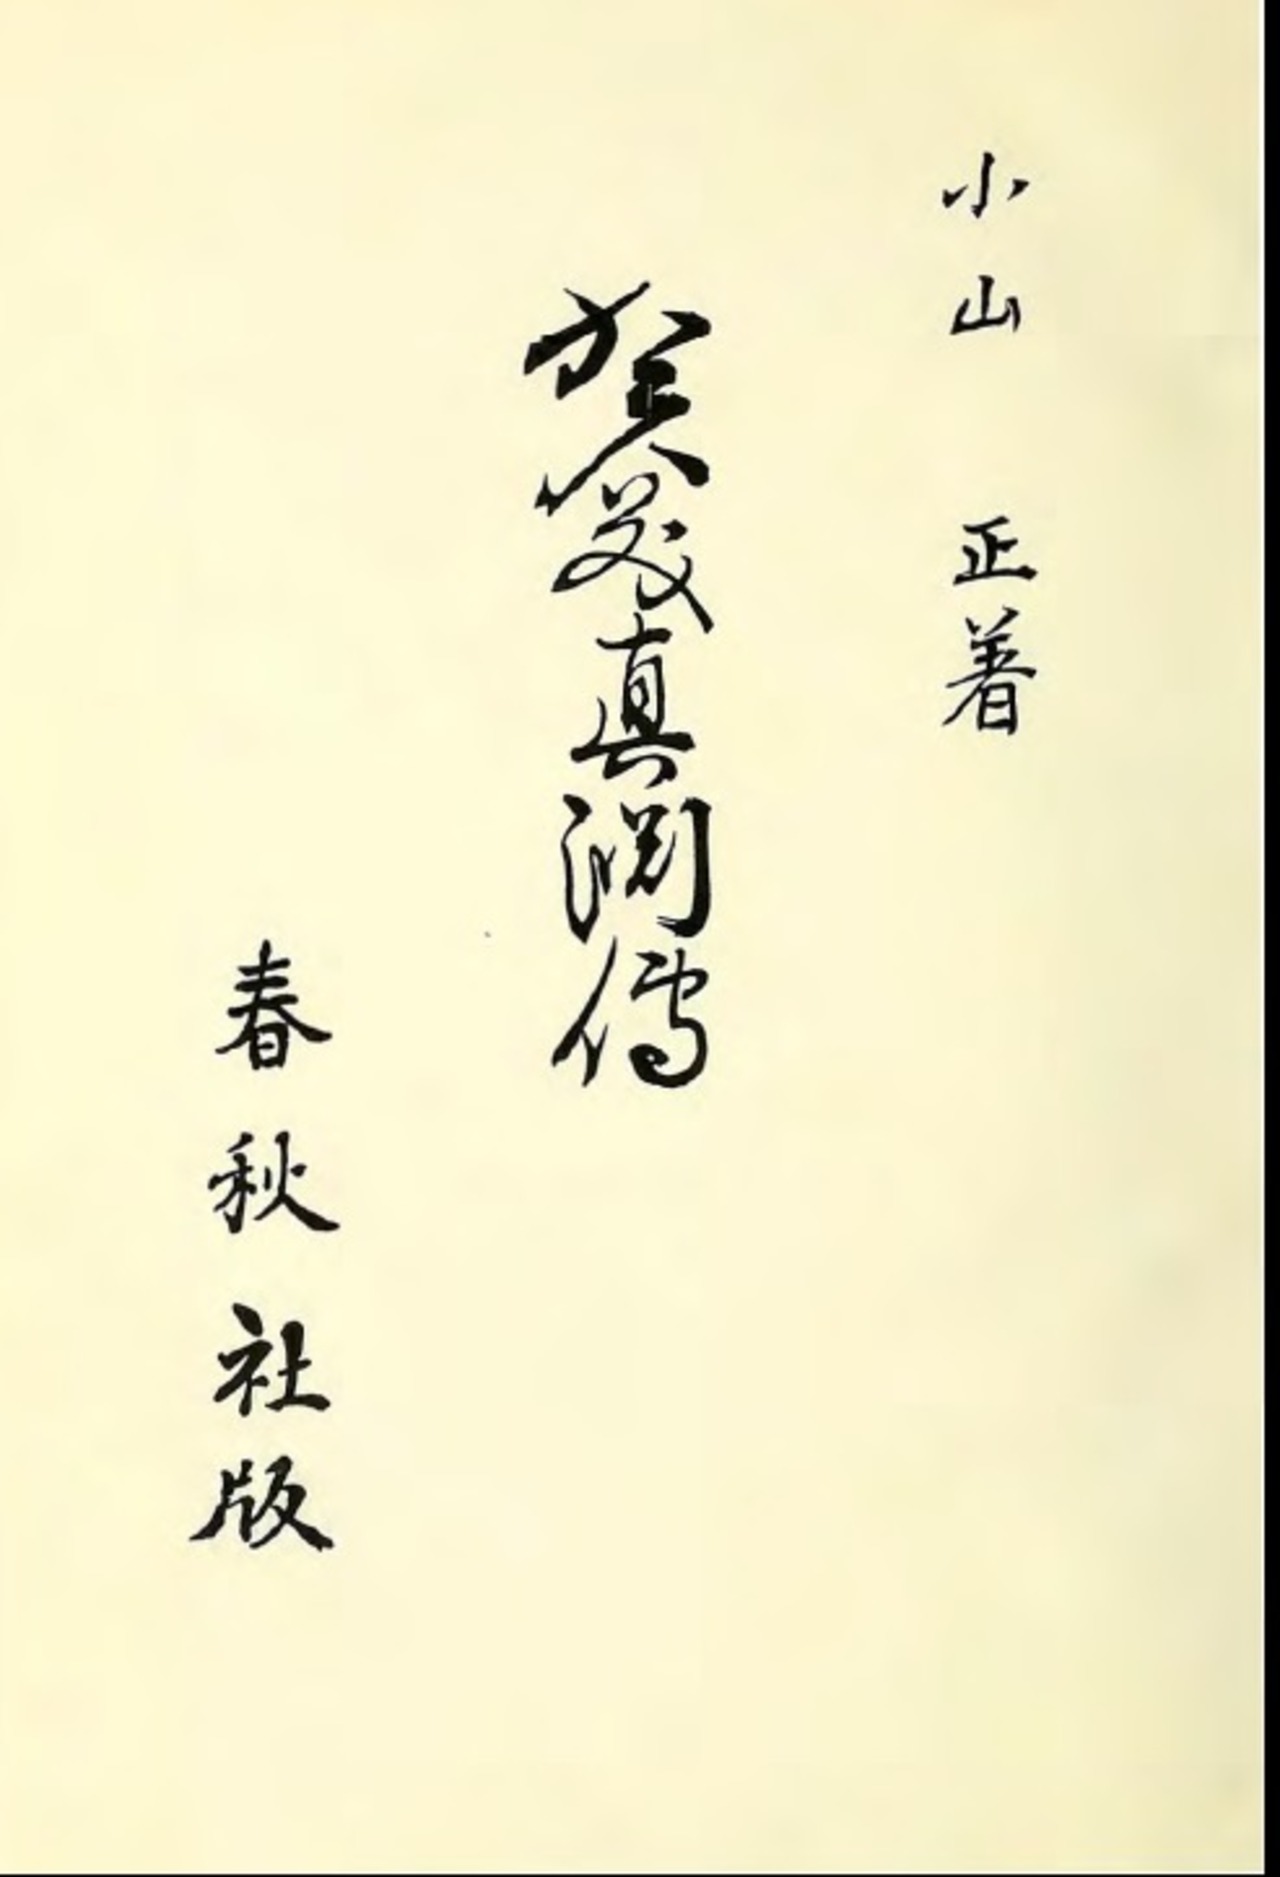 小山 正著
賀茂真淵傳
春秋社版